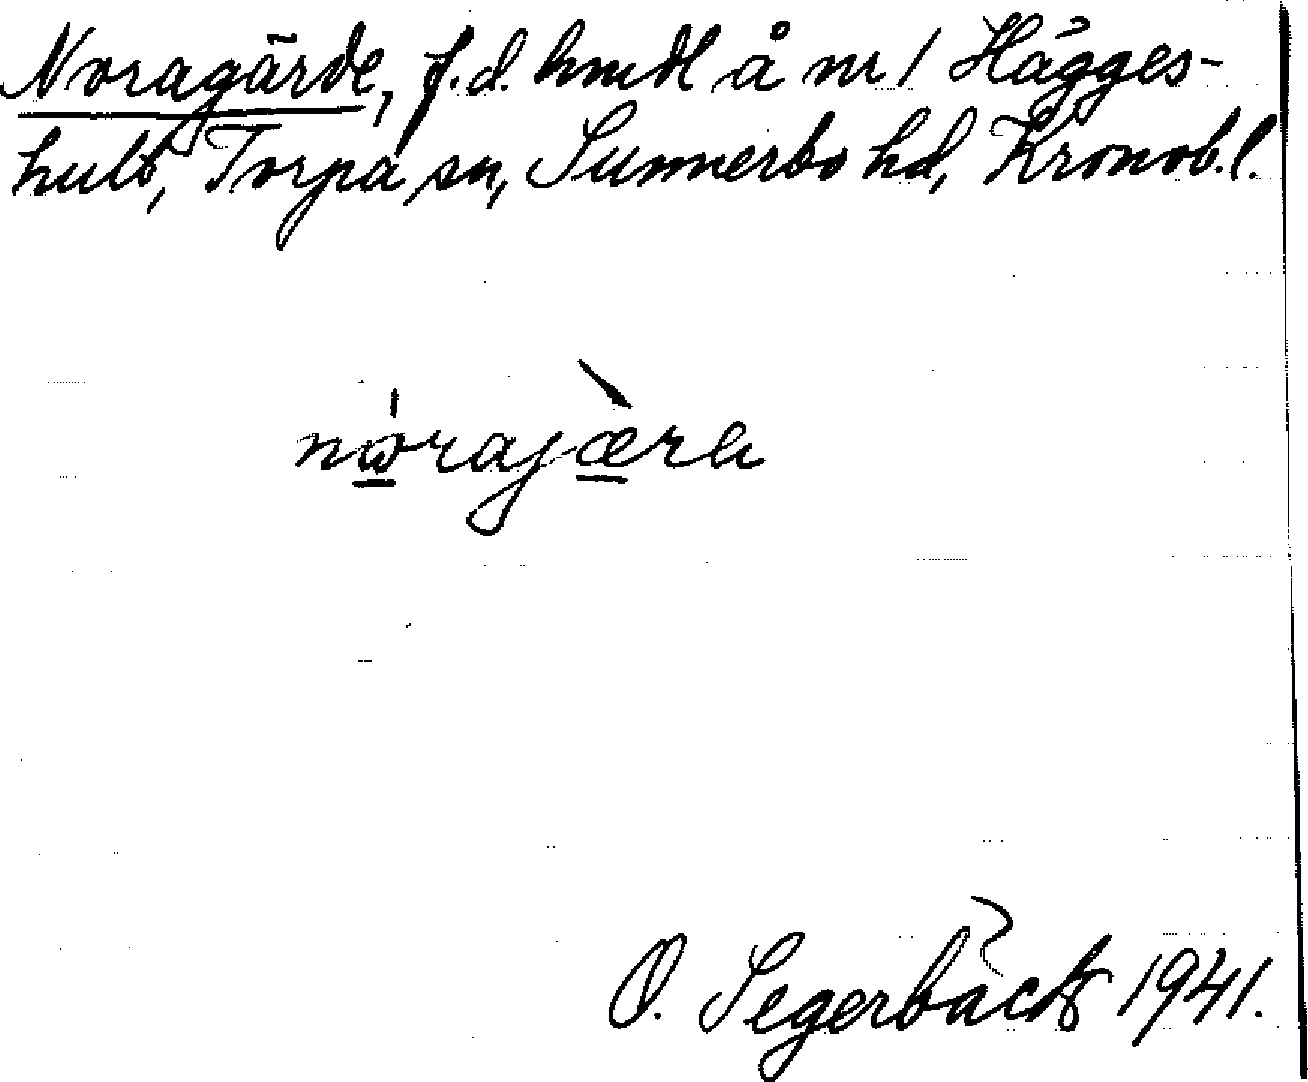 Noragärde, f.d. hmdl å nr 1 Hägges-
hult, Torpa sn, Sunnerbo hd, Kronob.l.
nⱺ́rajæ̀rɑ
O. Segerbäck 1941.